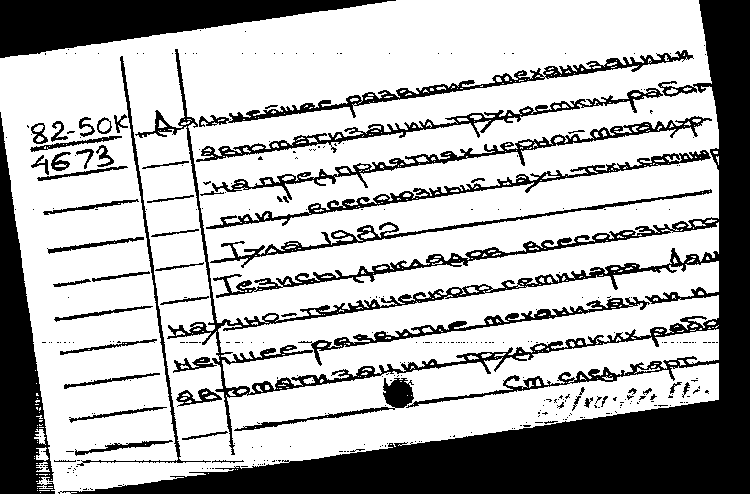 82-50К Дальнейшее развитие механизации и
4673 автоматизации трудоемких работ
на предприятиях черной металлур-
гии", всесоюзный науч.-техн. семинар
Тула 1982
Тезисы докладов всесоюзного
научно-технического семинара „Даль-
нейшее развитие механизации и
автоматизации трудоемких рабо
См. след. карт.